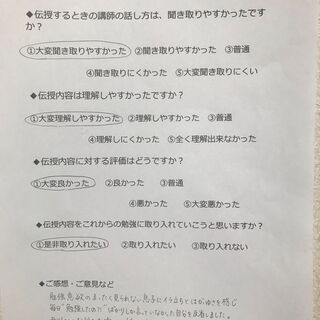 ◆伝授するときの講師の話し方は、聞き取りやすかったです
か?
①大変聞き取りやすかった ②聞き取りやすかった ③普通
④聞き取りにくかった ⑤大変聞き取りにくい
◆伝授内容は理解しやすかったですか?
①大変理解しやすかった ②理解しやすかった ③普通
④理解しにくかった ⑤全く理解出来なかった
◆伝授内容に対する評価はどうですか?
①大変良かった ②良かった ③普通
④悪かった ⑤大変悪かった
◆伝授内容をこれからの勉強に取り入れていこうと思いますか?
①是非取り入れたい ②取り入れたい ③取り入れない
◆ご感想・ご意見など
勉強意欲のまったく見られない息子にイラ立ちとはがゆさを感じ
毎日"勉強したの?"ばかりしか言っていなかした自分を反省しました。